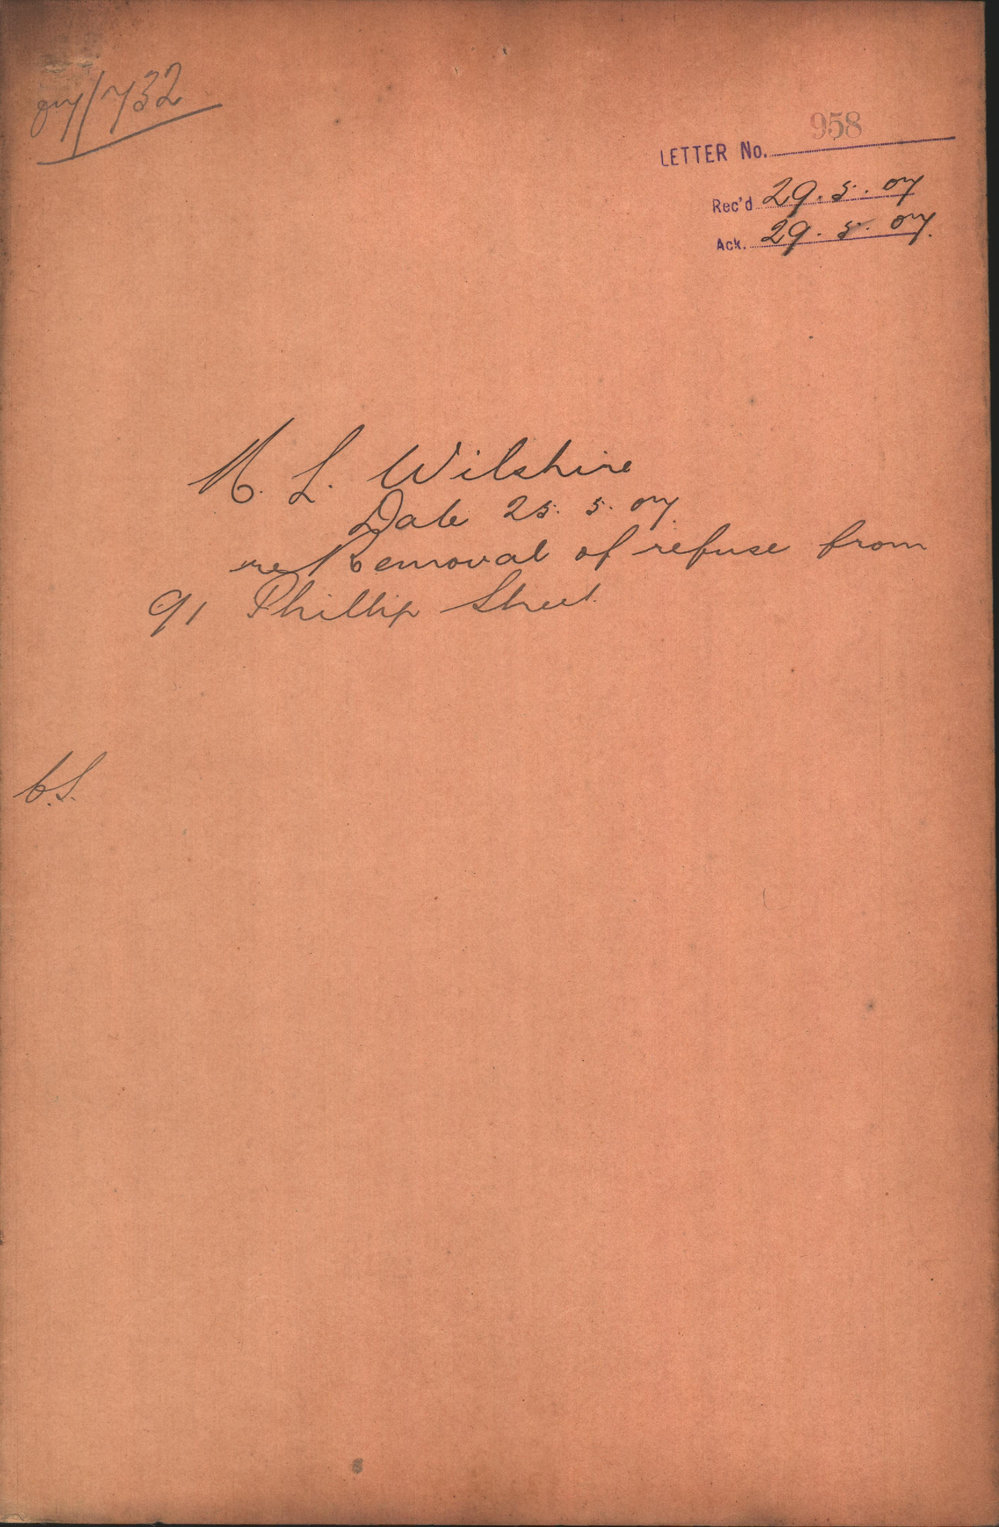 07/732
LETTER No. 958
Rec'd 29.5.07
Ack. 29.5.07.
L. Wilshire
Date 25.5.07.
re Removal of refuse from
91 Phillip Street.